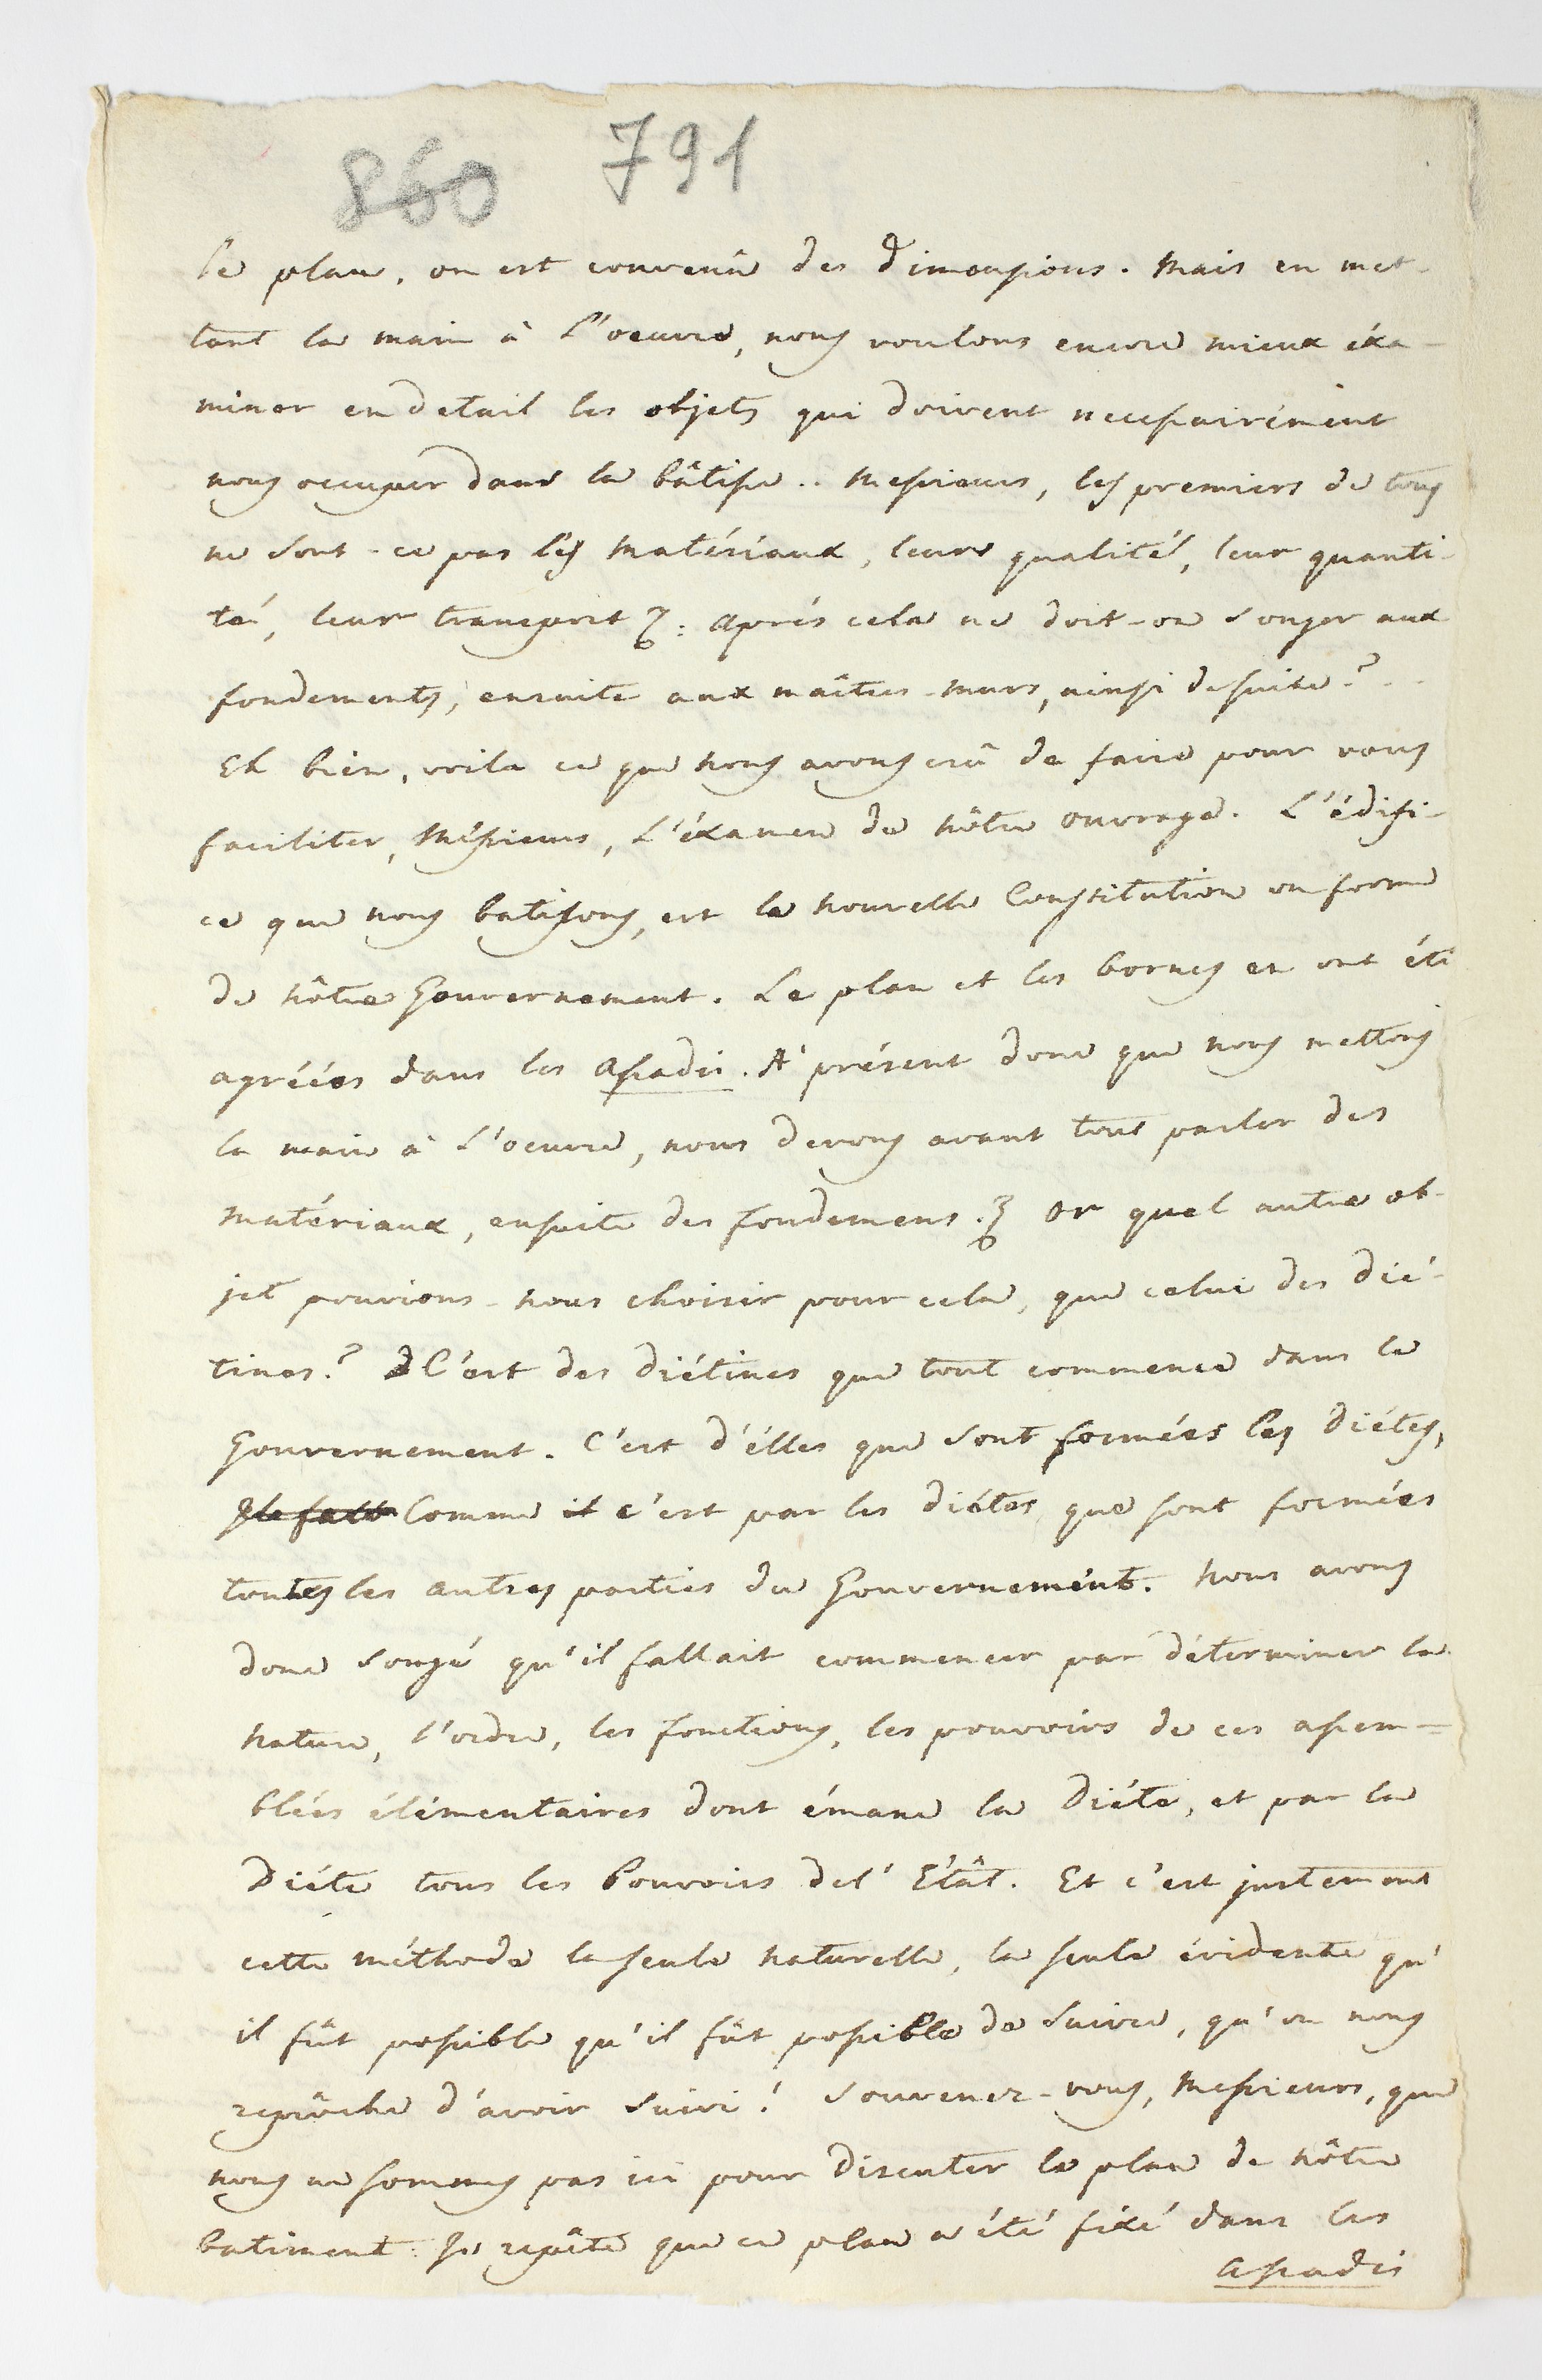 860 791
le plan, on est convenû des Dimensions. Mais en met-
tant la main à l'oeuvre, nous voulons encore mieux éxa-
miner en detail les objets qui doivent necessairément
nous occuper dans la bâtisse.. Messieurs, les premiers de tous
ne sont-ce pas les Matériaux, leurs qualités, leur quanti-
té, leur transport : après cela ne doit-on songer aux
fondements, ensuite aux maîtres-murs, ainsi desuite?..
Eh bien, voila ce que nous avons crû de faire pour vous
faciliter, Messieurs, l'éxamen de nôtre ouvrage. L'édifi-
ce que nous batissons, est la nouvelle Constitution ou forme
de nôtre Gouvernement. Le plan et les bornes en ont été
agréées dans les Assadis. A' présent donc que nous mettons
la main à l'oeuvre, nous devons avant tout parler des
matériaux, ensuite des fondemens. Or quel autre ob-
jet pourions-nous choisir pour cela, que celui des dié-
tines? C'est des diétines que tout commence dans le
Gouvernement. C'est d'élles que sont formées les Diétes,
Comme il c'est par les diétes que sont formées
toutes les autres parties du Gouvernemént. Nous avons
donc songé qu'il fallait commencer par déterminer la
nature, l'ordre, les fonctions, les pouvoirs de ces assem-
blées élémentaires dont émane la Diéte, et par la
Diéte tous les Pouvoirs del' Etât. Et c'est justement
cette méthode la seule naturelle, la seule évidente qu'
il fût possible qu'il fût possible de suivre, qu'on nous
reprôche d'avoir suivi! Souvenez-vous, Messieurs, que
nous ne sommes pas ici pour discuter le plan de nôtre
batiment. Je repête que ce plan a été fixé dans les
Assadis